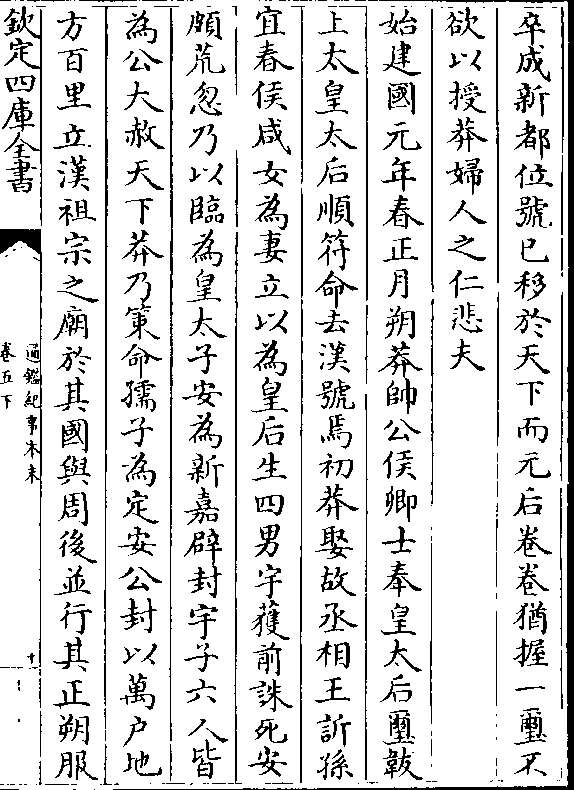 卒成新都位號已移於天下而元后卷卷猶握一璽不
欲以授莽婦人之仁悲夫
始建國元年春正月朔莽帥公侯卿士奉皇太后璽韍
上太皇太后順符命去漢號焉初莽娶故丞相王訢孫
宜春侯咸女為妻立以為皇后生四男宇獲前誅死安
頗荒忽乃以臨為皇太子安為新嘉辟封宇子六人皆
為公大赦天下莽乃策命孺子為定安公封以萬户地
方百里立漢祖宗之廟於其國與周後並行其正朔服
欽定四庫全書
通鑑紀事本末
卷五下
十